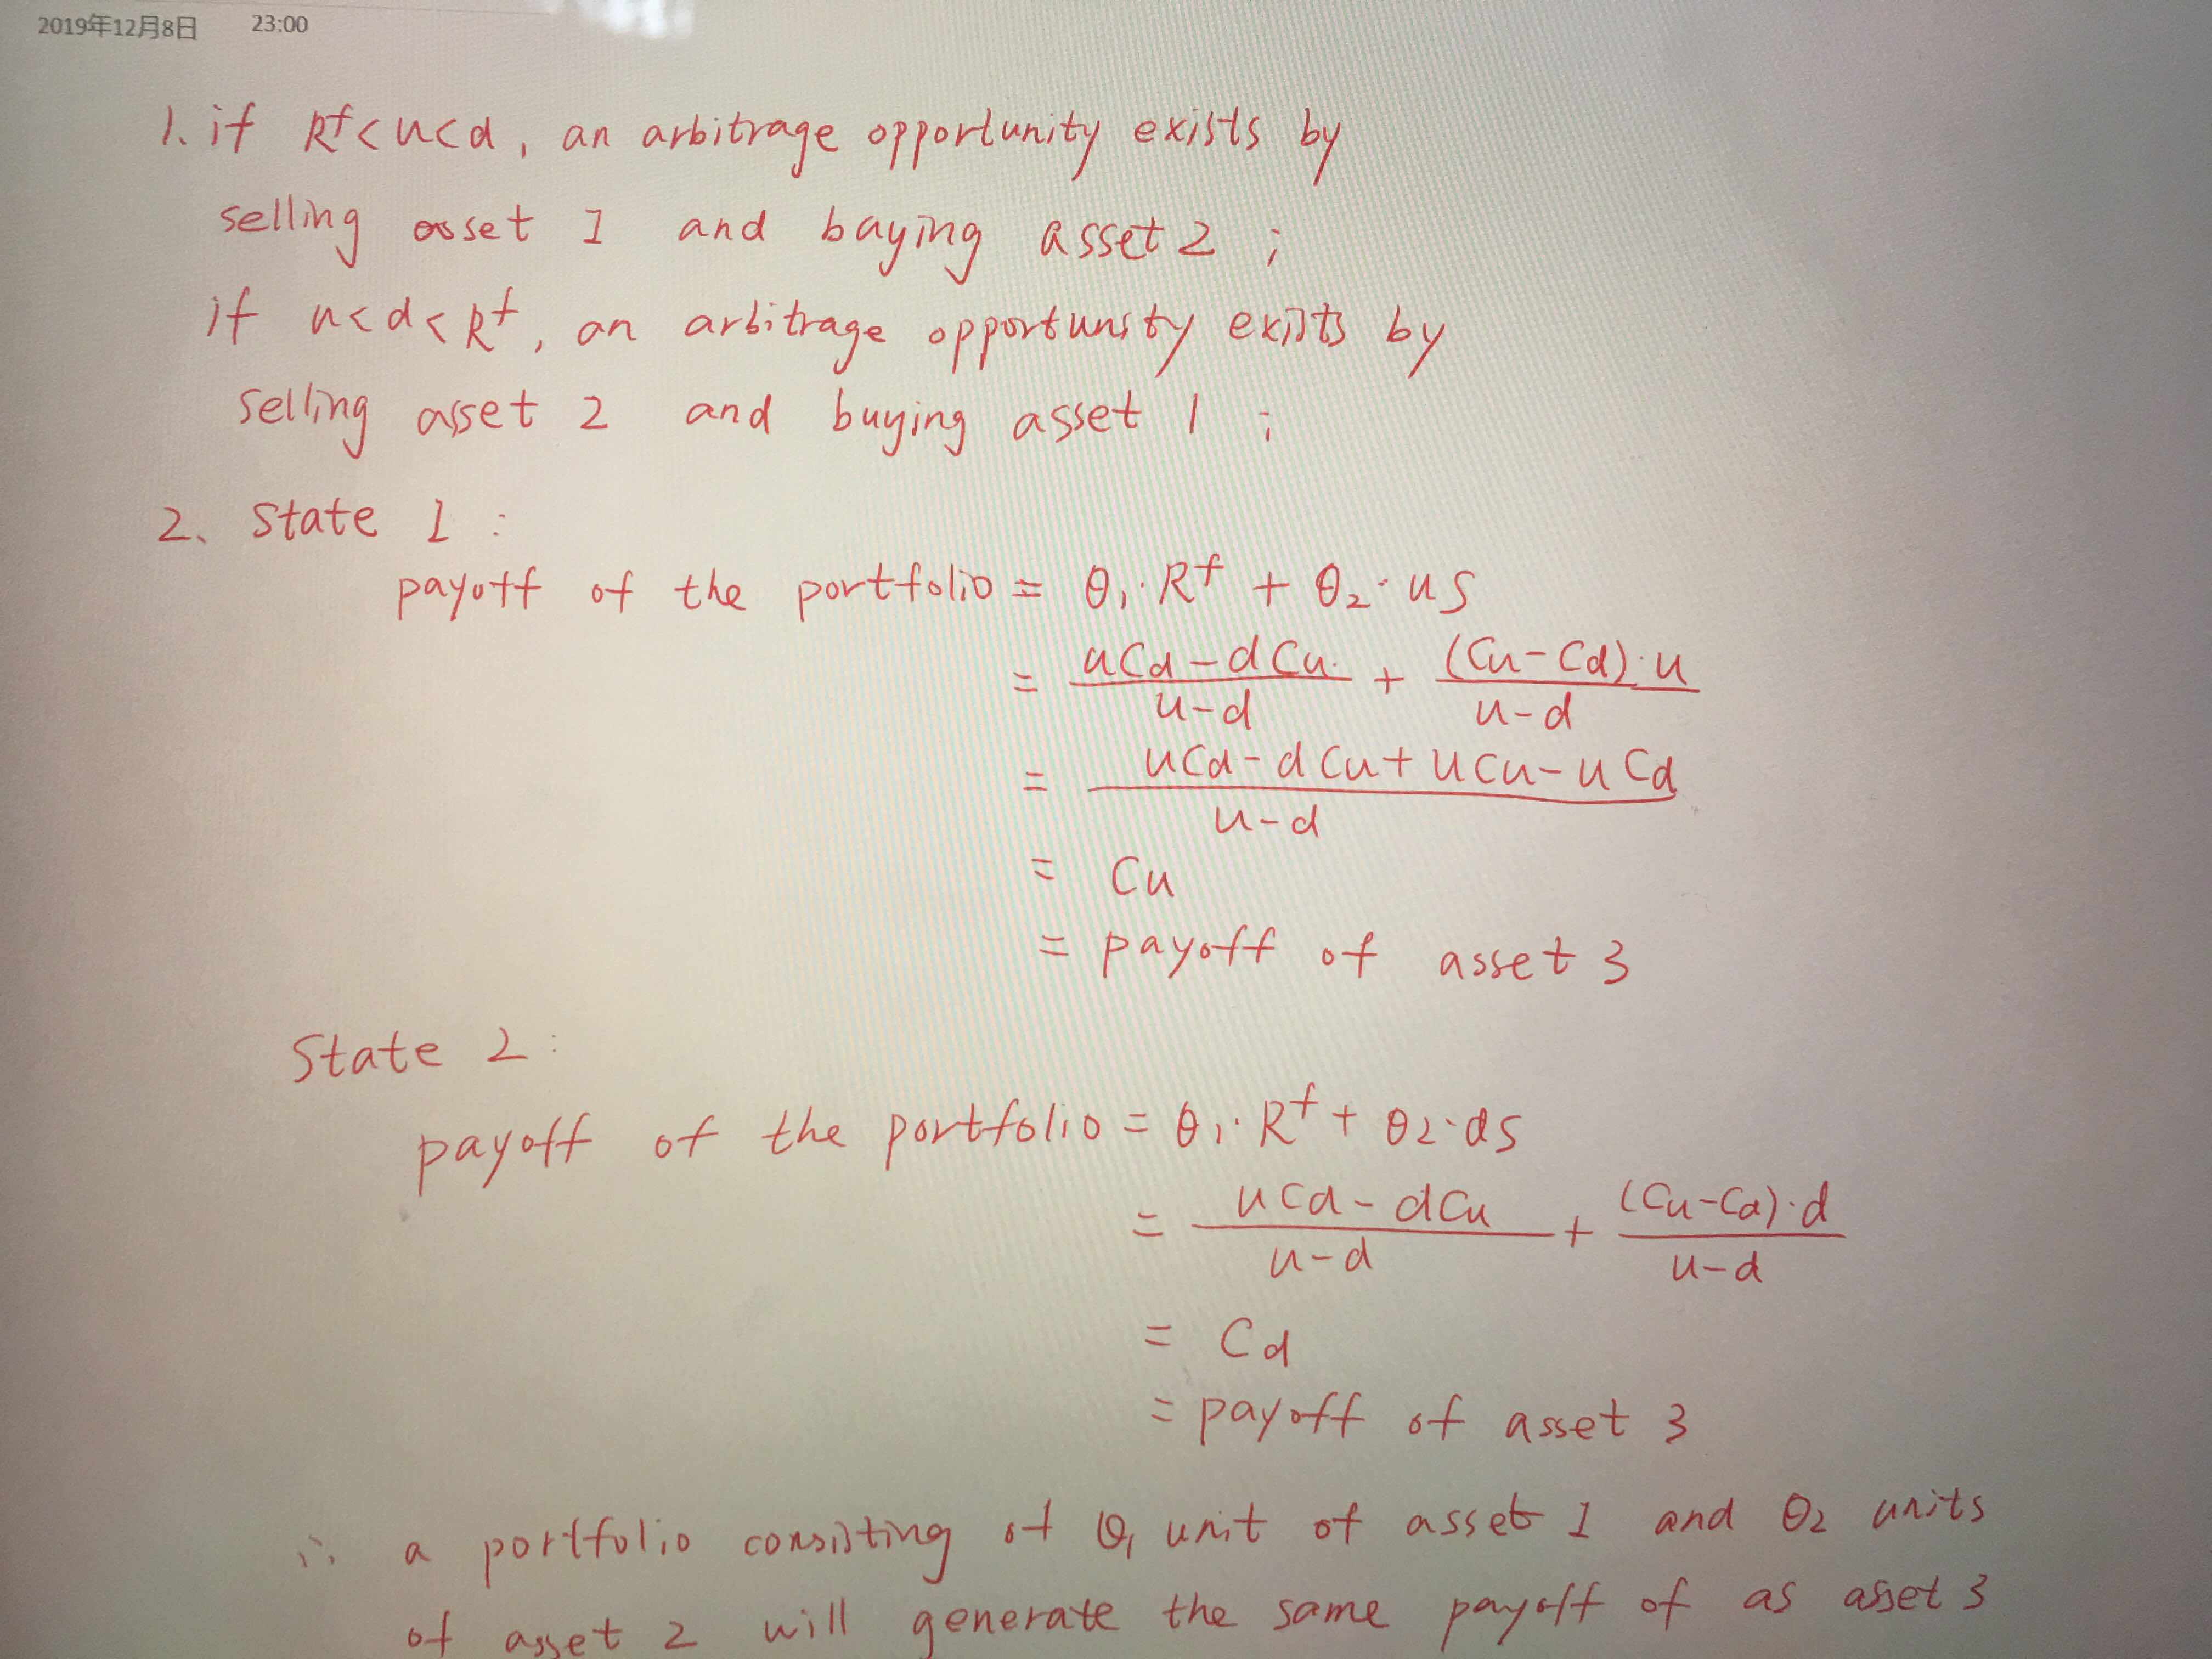 2019年12月8日 23:00
1. if R^f < u < d, an arbitrage opportunity exists by
selling asset 1 and baying asset 2 ;
if u < d < R^f, an arbitrage opportunity exists by
selling asset 2 and buying asset 1 ;
2、 State 1 :
payoff of the portfolio = θ₁·R^f + θ₂·uS
= (uCd - dCu)/(u-d) + ((Cu - Cd)·u)/(u-d)
= (uCd - dCu + uCu - uCd)/(u-d)
= Cu
= payoff of asset 3
State 2 :
payoff of the portfolio = θ₁·R^f + θ₂·dS
= (uCd - dCu)/(u-d) + ((Cu - Cd)·d)/(u-d)
= Cd
= payoff of asset 3
∴ a portfolio consisting of θ₁ unit of asset 1 and θ₂ units
of asset 2 will generate the same payoff of as asset 3